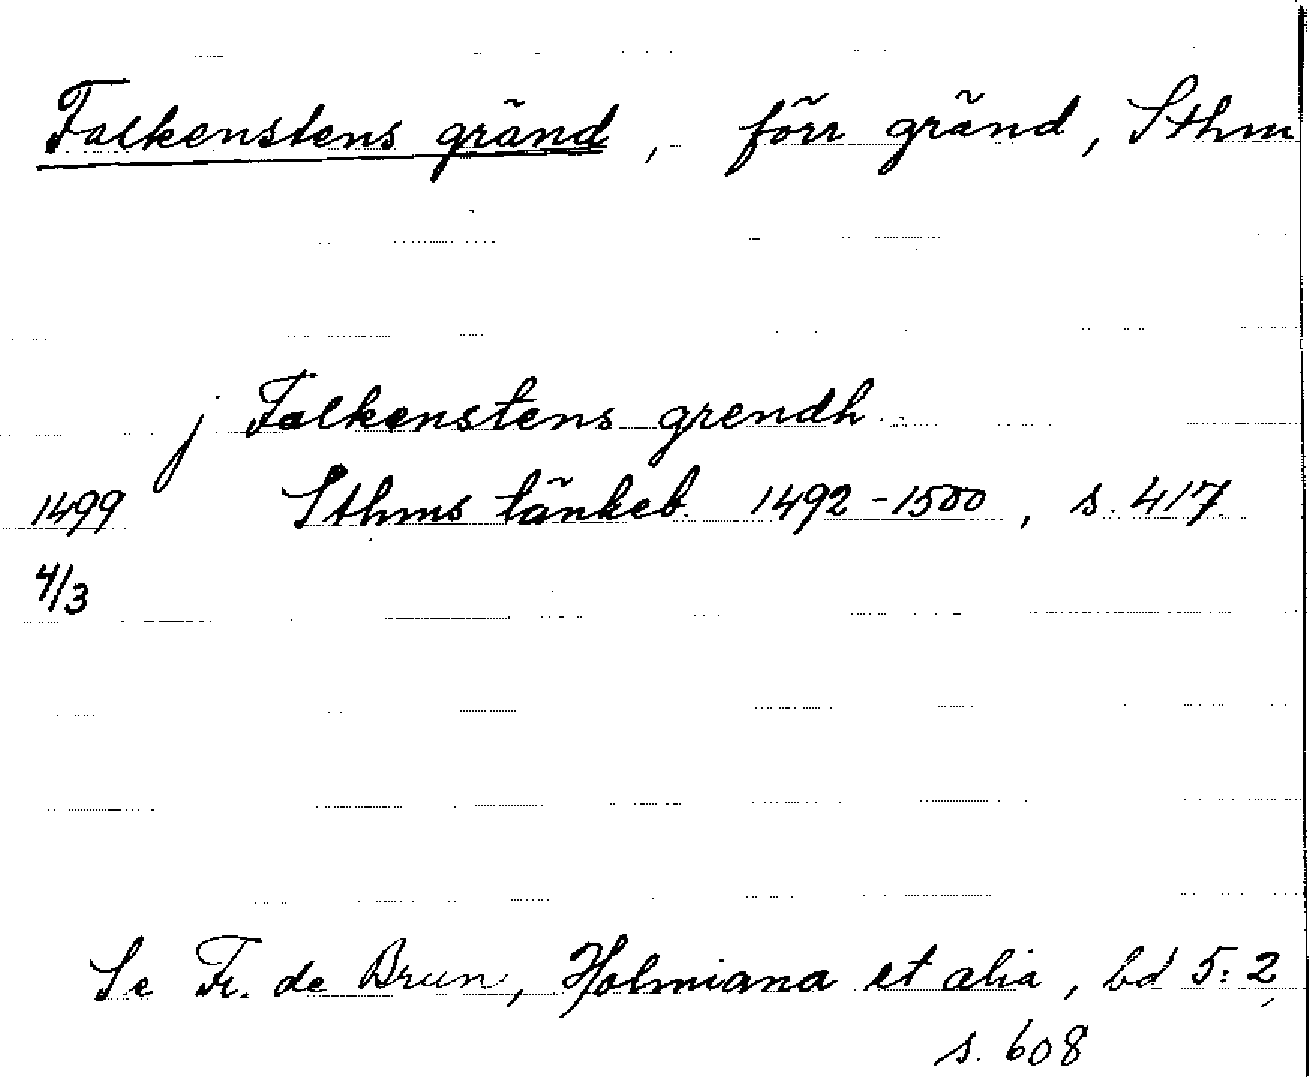 Falkenstens gränd, förr gränd, Sthm
j Falkenstens grendh
1499 Sthms tänkeb. 1492-1500, s. 417.
4/3
Se Fr. de Brun, Holmiana et alia, bd 5:2,
s. 608